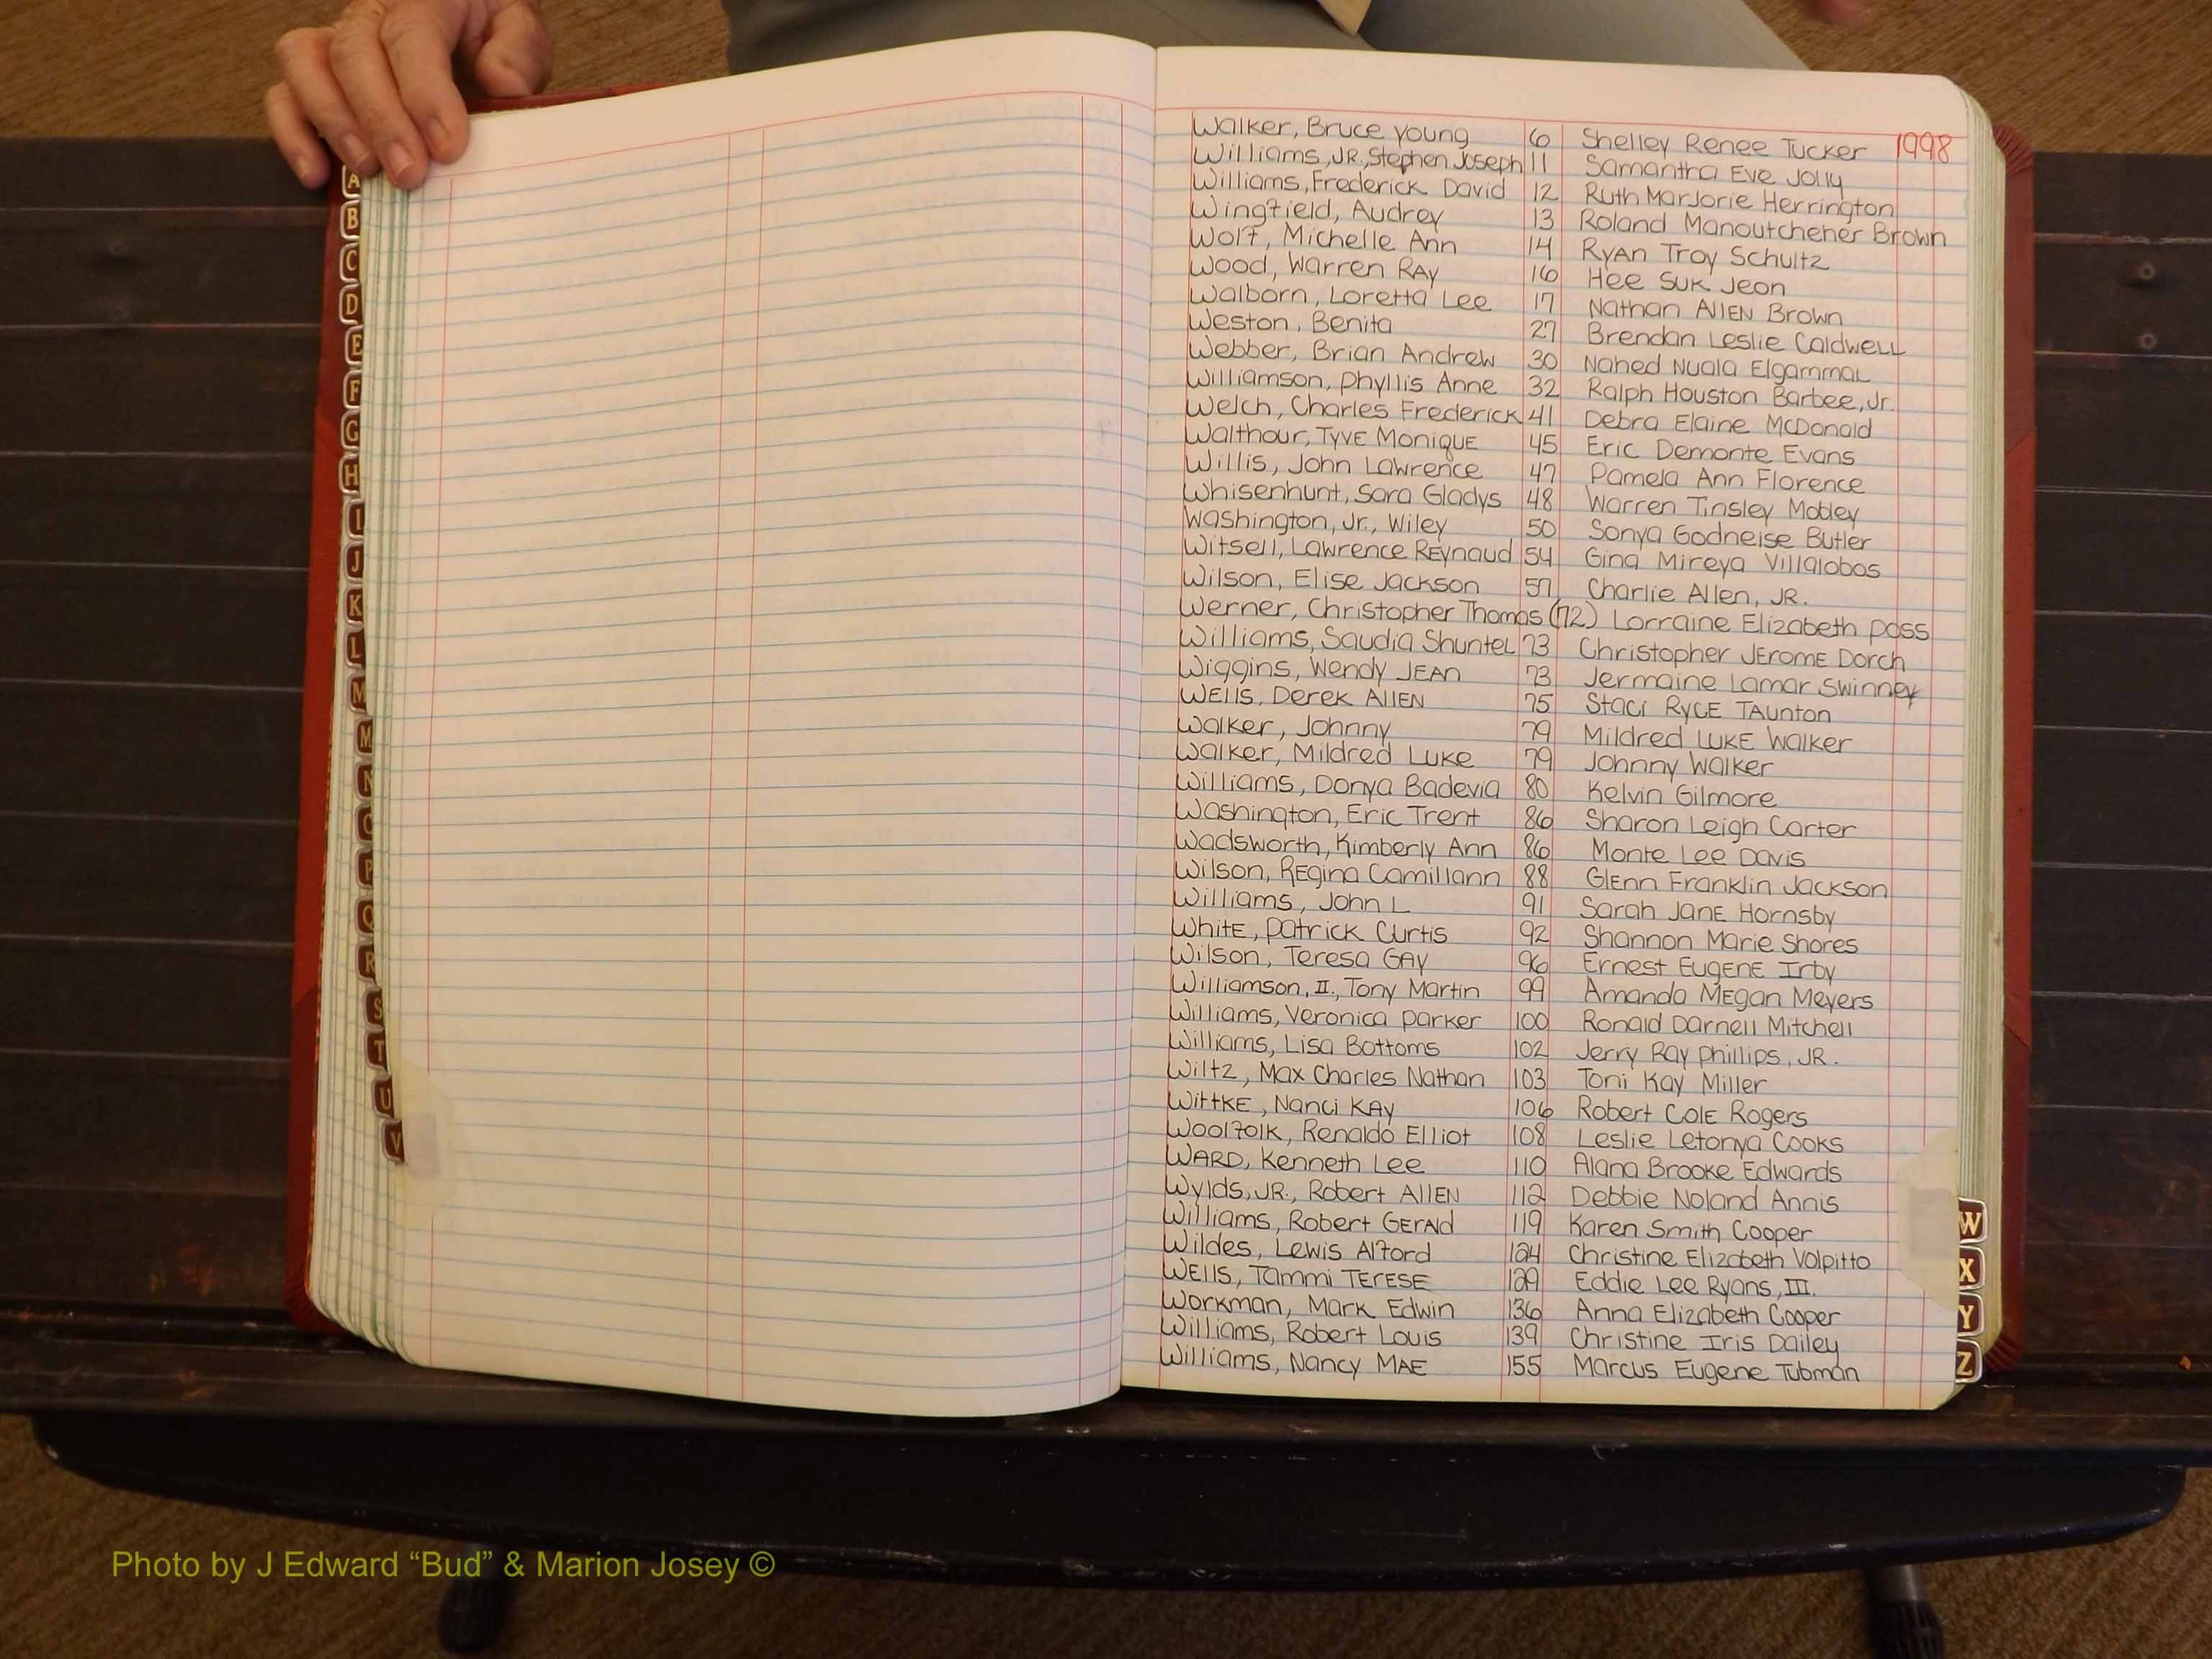 Walker, Bruce Young 6 Shelley Renee Tucker 1998
Williams, JR., Stephen Joseph 11 Samantha Eve Jolly
Williams, Frederick David 12 Ruth Marjorie Herrington
Wingfield, Audrey 13 Roland Manoutchener Brown
Wolf, Michelle Ann 14 Ryan Troy Schultz
Wood, Warren Ray 16 Hee Suk Jeon
Walborn, Loretta Lee 17 Nathan Allen Brown
Weston, Benita 27 Brendan Leslie Caldwell
Webber, Brian Andrew 30 Nahed Nuala Elgammal
Williamson, Phyllis Anne 32 Ralph Houston Barbee, Jr.
Welch, Charles Frederick 41 Debra Elaine McDonald
Walthour, Tyve Monique 45 Eric Demonte Evans
Willis, John Lawrence 47 Pamela Ann Florence
Whisenhunt, Sara Gladys 48 Warren Tinsley Mobley
Washington, Jr., Wiley 50 Sonya Godneise Butler
Witsell, Lawrence Reynaud 54 Gina Mireya Villalobos
Wilson, Elise Jackson 57 Charlie Allen, JR.
Werner, Christopher Thomas (72) Lorraine Elizabeth Poss
Williams, Saudia Shuntel 73 Christopher Jerome Dorch
Wiggins, Wendy Jean 73 Jermaine Lamar Swinney
Wells, Derek Allen 75 Staci Ryce Taunton
Walker, Johnny 79 Mildred Luke Walker
Walker, Mildred Luke 79 Johnny Walker
Williams, Donya Badevia 80 Kelvin Gilmore
Washington, Eric Trent 86 Sharon Leigh Carter
Wadsworth, Kimberly Ann 86 Monte Lee Davis
Wilson, Regina Camillann 88 Glenn Franklin Jackson
Williams, John L 91 Sarah Jane Hornsby
White, Patrick Curtis 92 Shannon Marie Shores
Wilson, Teresa Gay 96 Ernest Eugene Irby
Williamson, II., Tony Martin 99 Amanda Megan Meyers
Williams, Veronica Parker 100 Ronald Darnell Mitchell
Williams, Lisa Bottoms 102 Jerry Ray Phillips, JR.
Wiltz, Max Charles Nathan 103 Toni Kay Miller
Wittke, Nanci Kay 106 Robert Cole Rogers
Woolfolk, Renaldo Elliot 108 Leslie Letonya Cooks
Ward, Kenneth Lee 110 Alana Brooke Edwards
Wylds, JR., Robert Allen 112 Debbie Noland Annis
Williams, Robert Gerald 119 Karen Smith Cooper
Wildes, Lewis Alford 124 Christine Elizabeth Volpitto
Wells, Tammi Terese 129 Eddie Lee Ryans, III.
Workman, Mark Edwin 136 Anna Elizabeth Cooper
Williams, Robert Louis 139 Christine Iris Dailey
Williams, Nancy Mae 155 Marcus Eugene Tubman
A
B
C
D
E
F
G
H
I
J
K
L
M
M
N
O
P
Q
R
S
T
U
V
W
X
Y
Z
Photo by J Edward “Bud” & Marion Josey ©